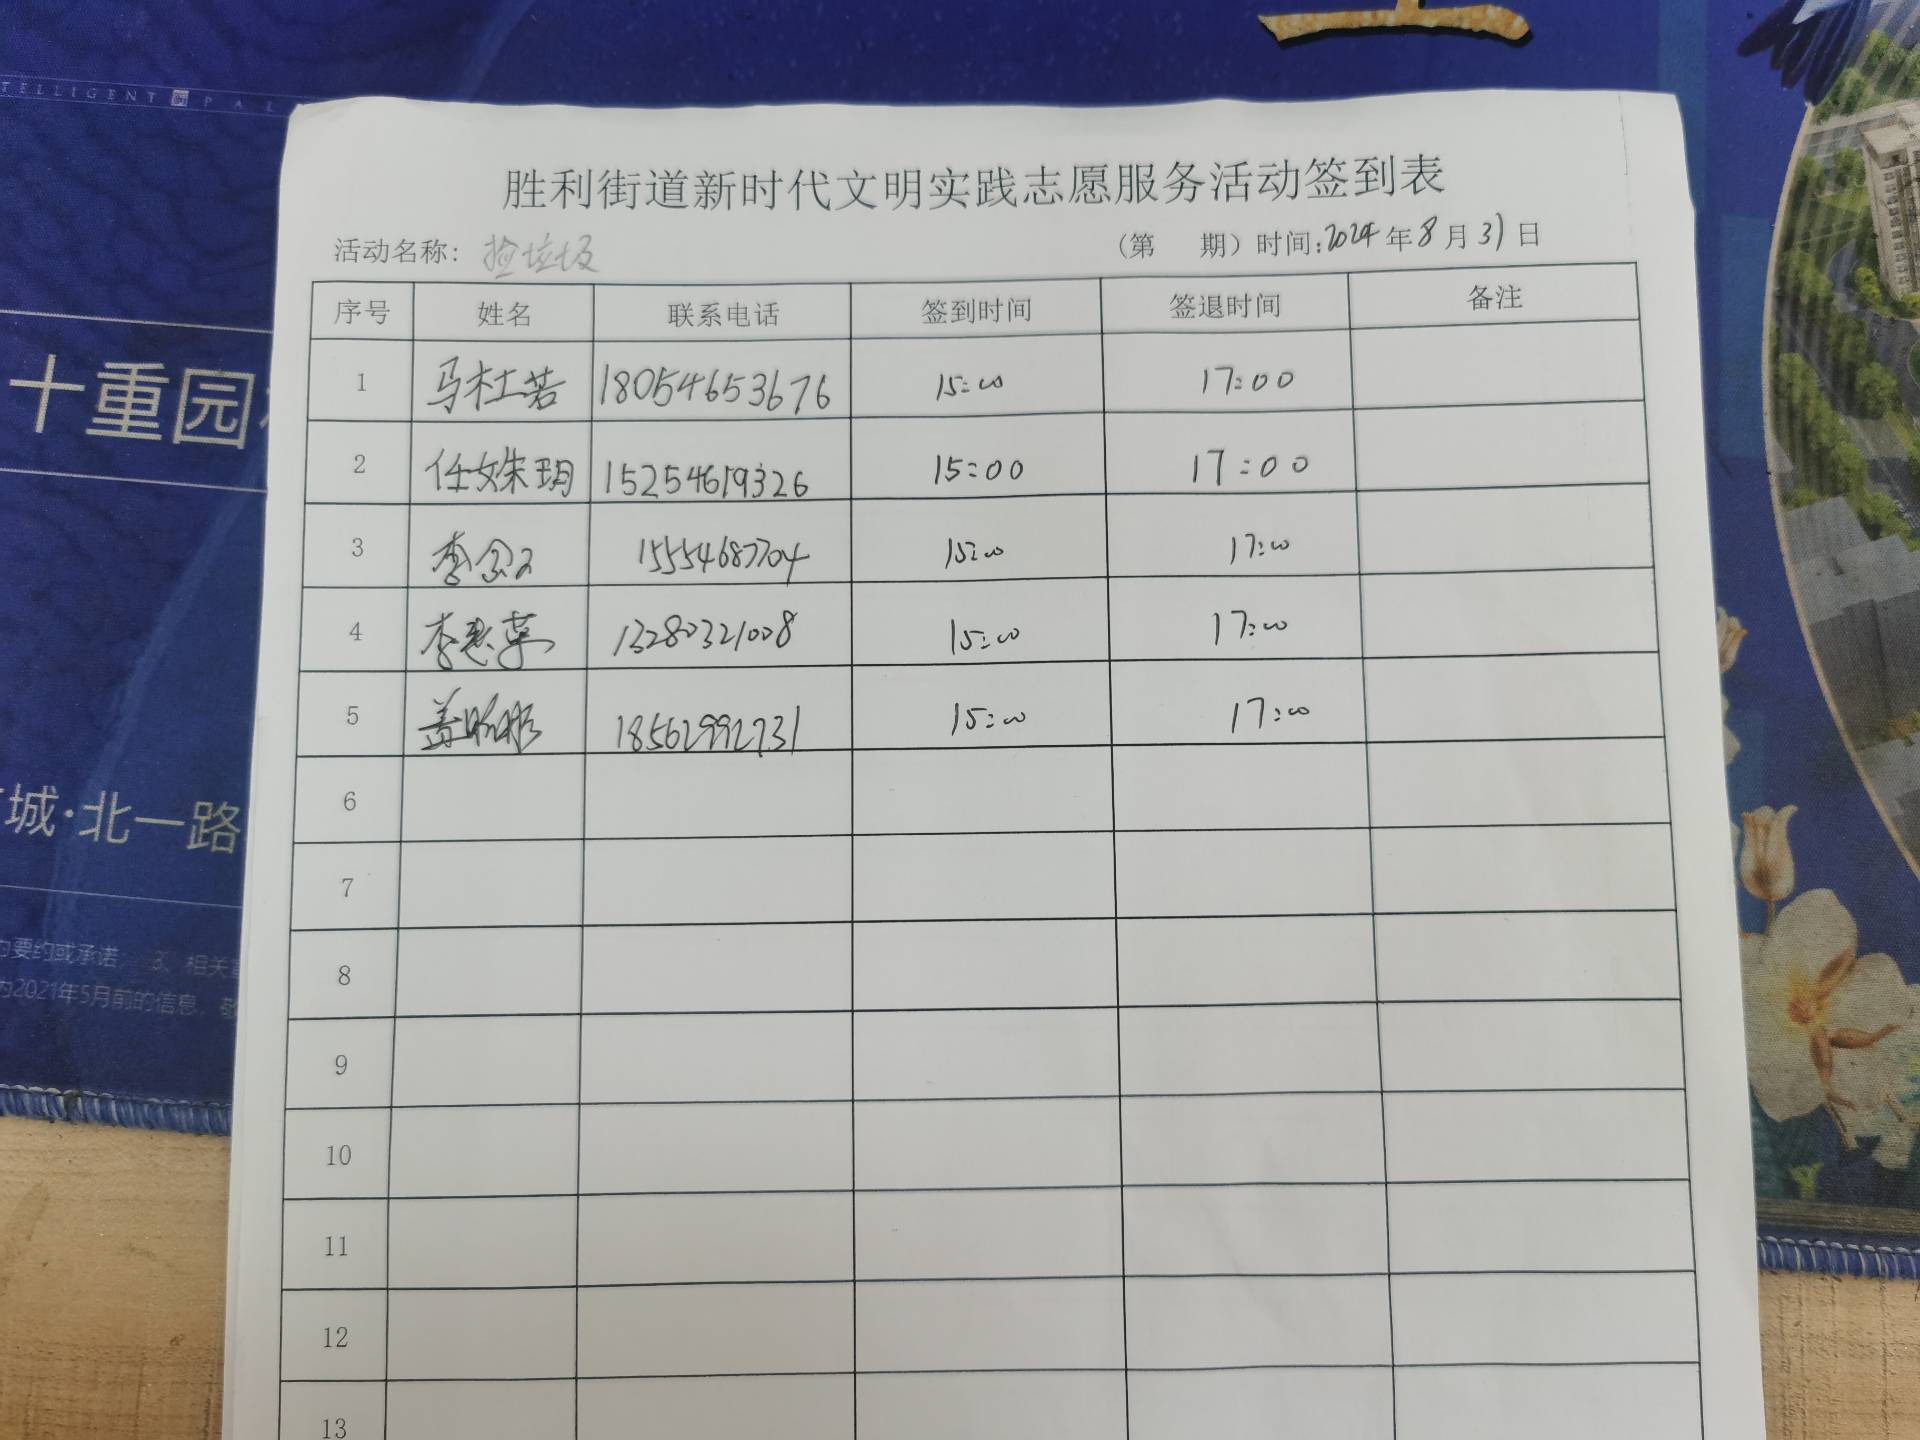 TELLIGENT PAL
十重园
城·北一路
要约或承诺。 3、相关
2021年5月前的信息，敬
胜利街道新时代文明实践志愿服务活动签到表
活动名称：捡垃圾 （第 期）时间：2024年8月31日
序号 姓名 联系电话 签到时间 签退时间 备注
1 马杜若 18054653676 15:00 17:00
2 任姝玥 15254619326 15:00 17:00
3 李 15554687704 15:00 17:00
4 李 13280321008 15:00 17:00
5 盖 18562992731 15:00 17:00
6
7
8
9
10
11
12
13